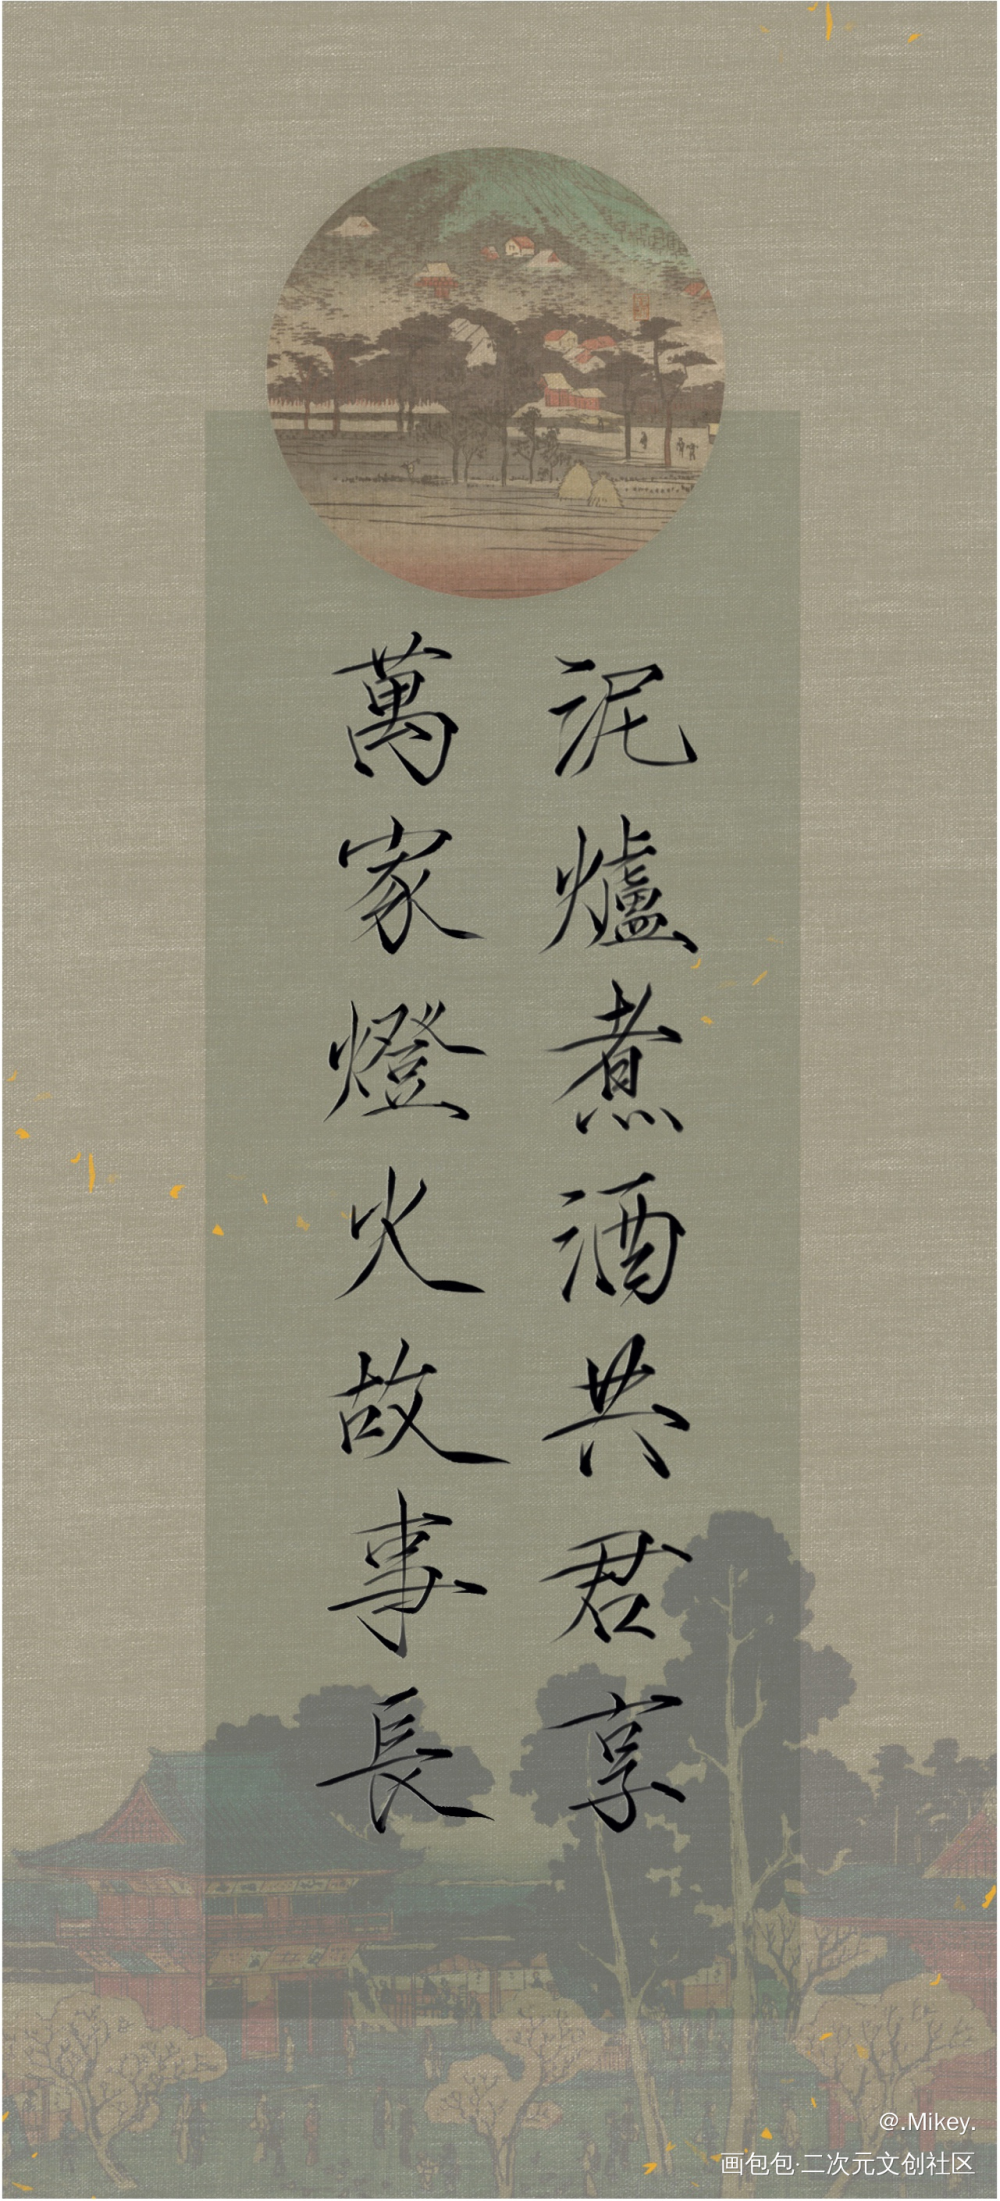 泥爐煮酒共君享
萬家燈火故事長
@.Mikey.
画包包·二次元文创社区